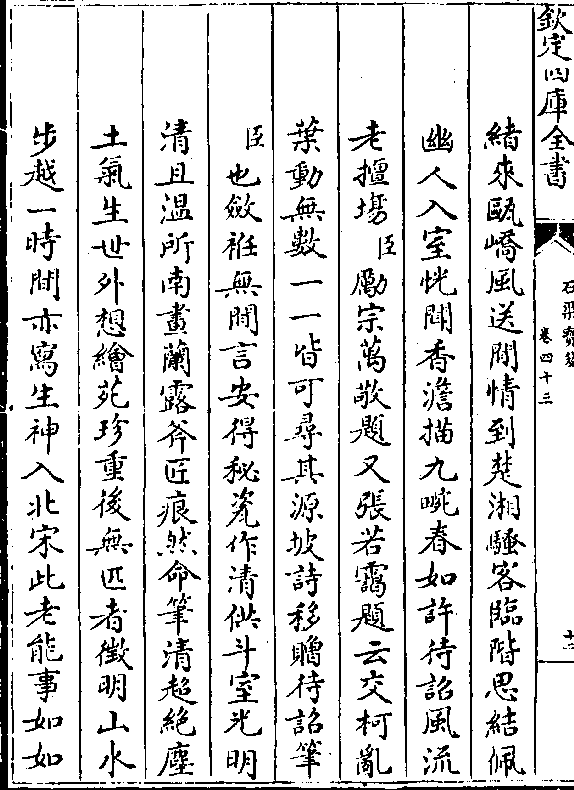 欽定四庫全書
石渠寶笈
卷四十三
十三
緒來甌嶠風送閒情到楚湘騷客臨階思結佩
幽人入室恍聞香澹描九畹春如許待詔風流
老擅塲臣勵宗萬敬題又張若靄題云交柯亂
葉動無數一一皆可尋其源坡詩移贈待詔筆
臣也斂袵無閒言安得秘瓷作清供斗室光明
清且溫所南畫蘭露斧匠痕然命筆清超絶塵
土氣生世外想繪苑珍重後無匹者徴明山水
步越一時間亦寫生神入北宋此老能事如如